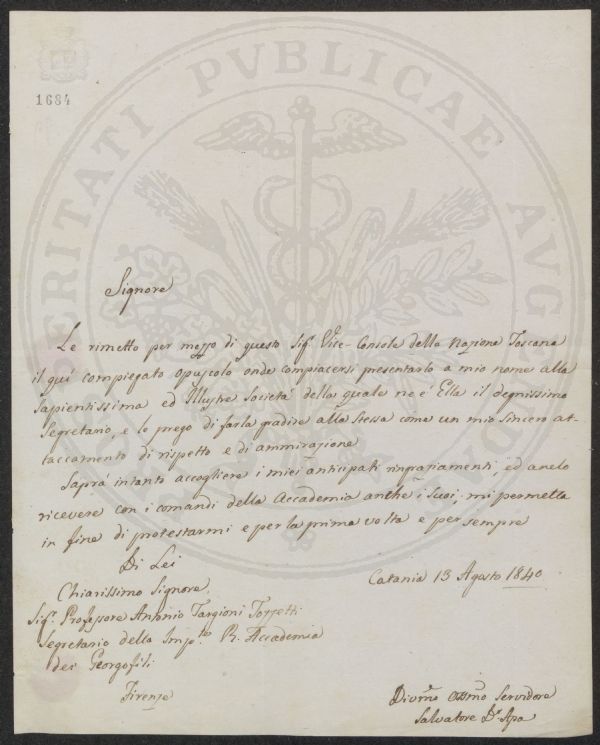 1684
PROSPERITATI PVBLICAE AVGENDAE
Signore
Le rimetto per mezzo di questo Sigr. Vice-Console della Nazione Toscana
il quì compiegato opuscolo onde compiacersi presentarlo a mio nome alla
Sapientissima ed Illustre Società della quale ne è Ella il degnissimo
Segretario, e le prego di farla gradire alla stessa come un mio sincero at-
taccamento di rispetto e di ammirazione
Saprà intanto accogliere i miei anticipati ringraziamenti, ed anelo
ricevere con i comandi della Accademia anche i Suoi, mi permetta
in fine di protestarmi e per la prima volta e per sempre
Di Lei
Chiarissimo Signore
Sigr. Professore Antonio Targioni Tozzetti
Segretario della Imple. R. Accademia
dei Georgofili
Firenze
Catania 13 Agosto 1840
Divmo Obbmo Servidore
Salvatore Dr.